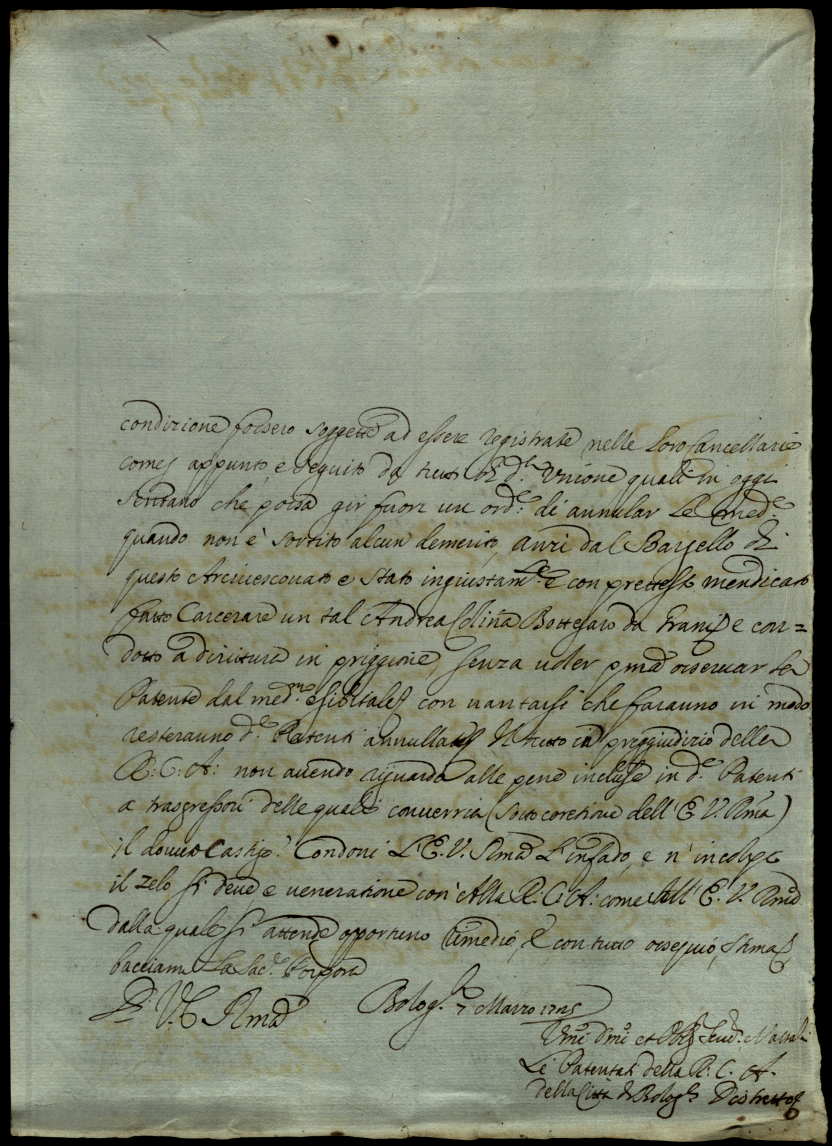 condizione fossero soggette ad essere registrate nelle Loro Cancellarie
come appunto, e seguito da tutti di d.ª Unione quali in oggi
sentano che possa gir fuori un ord.e di annular Le med.e
quando non è sortito alcun demerito, anzi dal Bargello di
questo Arcivescovato e stato ingiustam.te e con pretesto mendicato
fatto Carcerare un tal Andrea Colina Bottegaro da Grani, e con=
dotto a diritura in priggione, senza uoler pma osseruar la
Patente dal med.mo con uantarsi che faranno in modo
resteranno d.e Patenti annullate Il tutto in preggiudizio della
R: C: A: non auendo riguardo alle pene incluse in d.e Patenti
a trasgressori delle quali conuerria (sotto coretione dell' E. V. Rma)
il douuto Castigo. Condoni L'E. V. Rma L'infado, e n' incolpi
il zelo si deue e ueneratione cosi Alla R: C: A: come All' E. V. Rma
dalla quale si attende opportuno rimedio, e con tutto ossequio,
bacciamo La Sac. Porpora
Di V. E. Rma Bolog.a 7 Marzo 1715
Umi Dmi et Obl Serui
Li Patentati della R. C. A.
della Città di Bolog.a Distretto